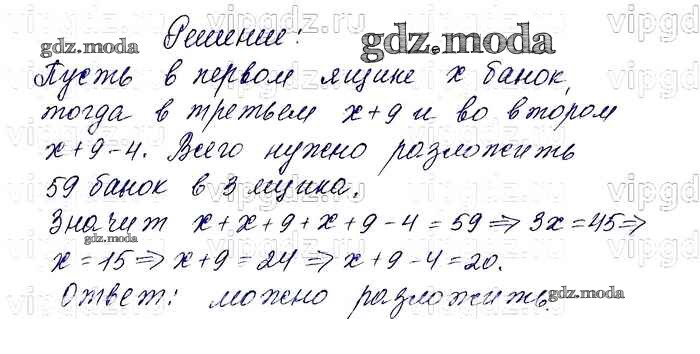 Решение:
Пусть в первом ящике x банок,
тогда в третьем x+9 и во втором
x+9-4. Всего нужно разложить
59 банок в 3 ящика.
Значит x+x+9+x+9-4=59⇒3x=45⇒
x=15⇒x+9=24⇒x+9-4=20.
Ответ: можно разложить.
gdz.moda
gdz.moda
gdz.moda
gdz.moda
vipgdz.ru